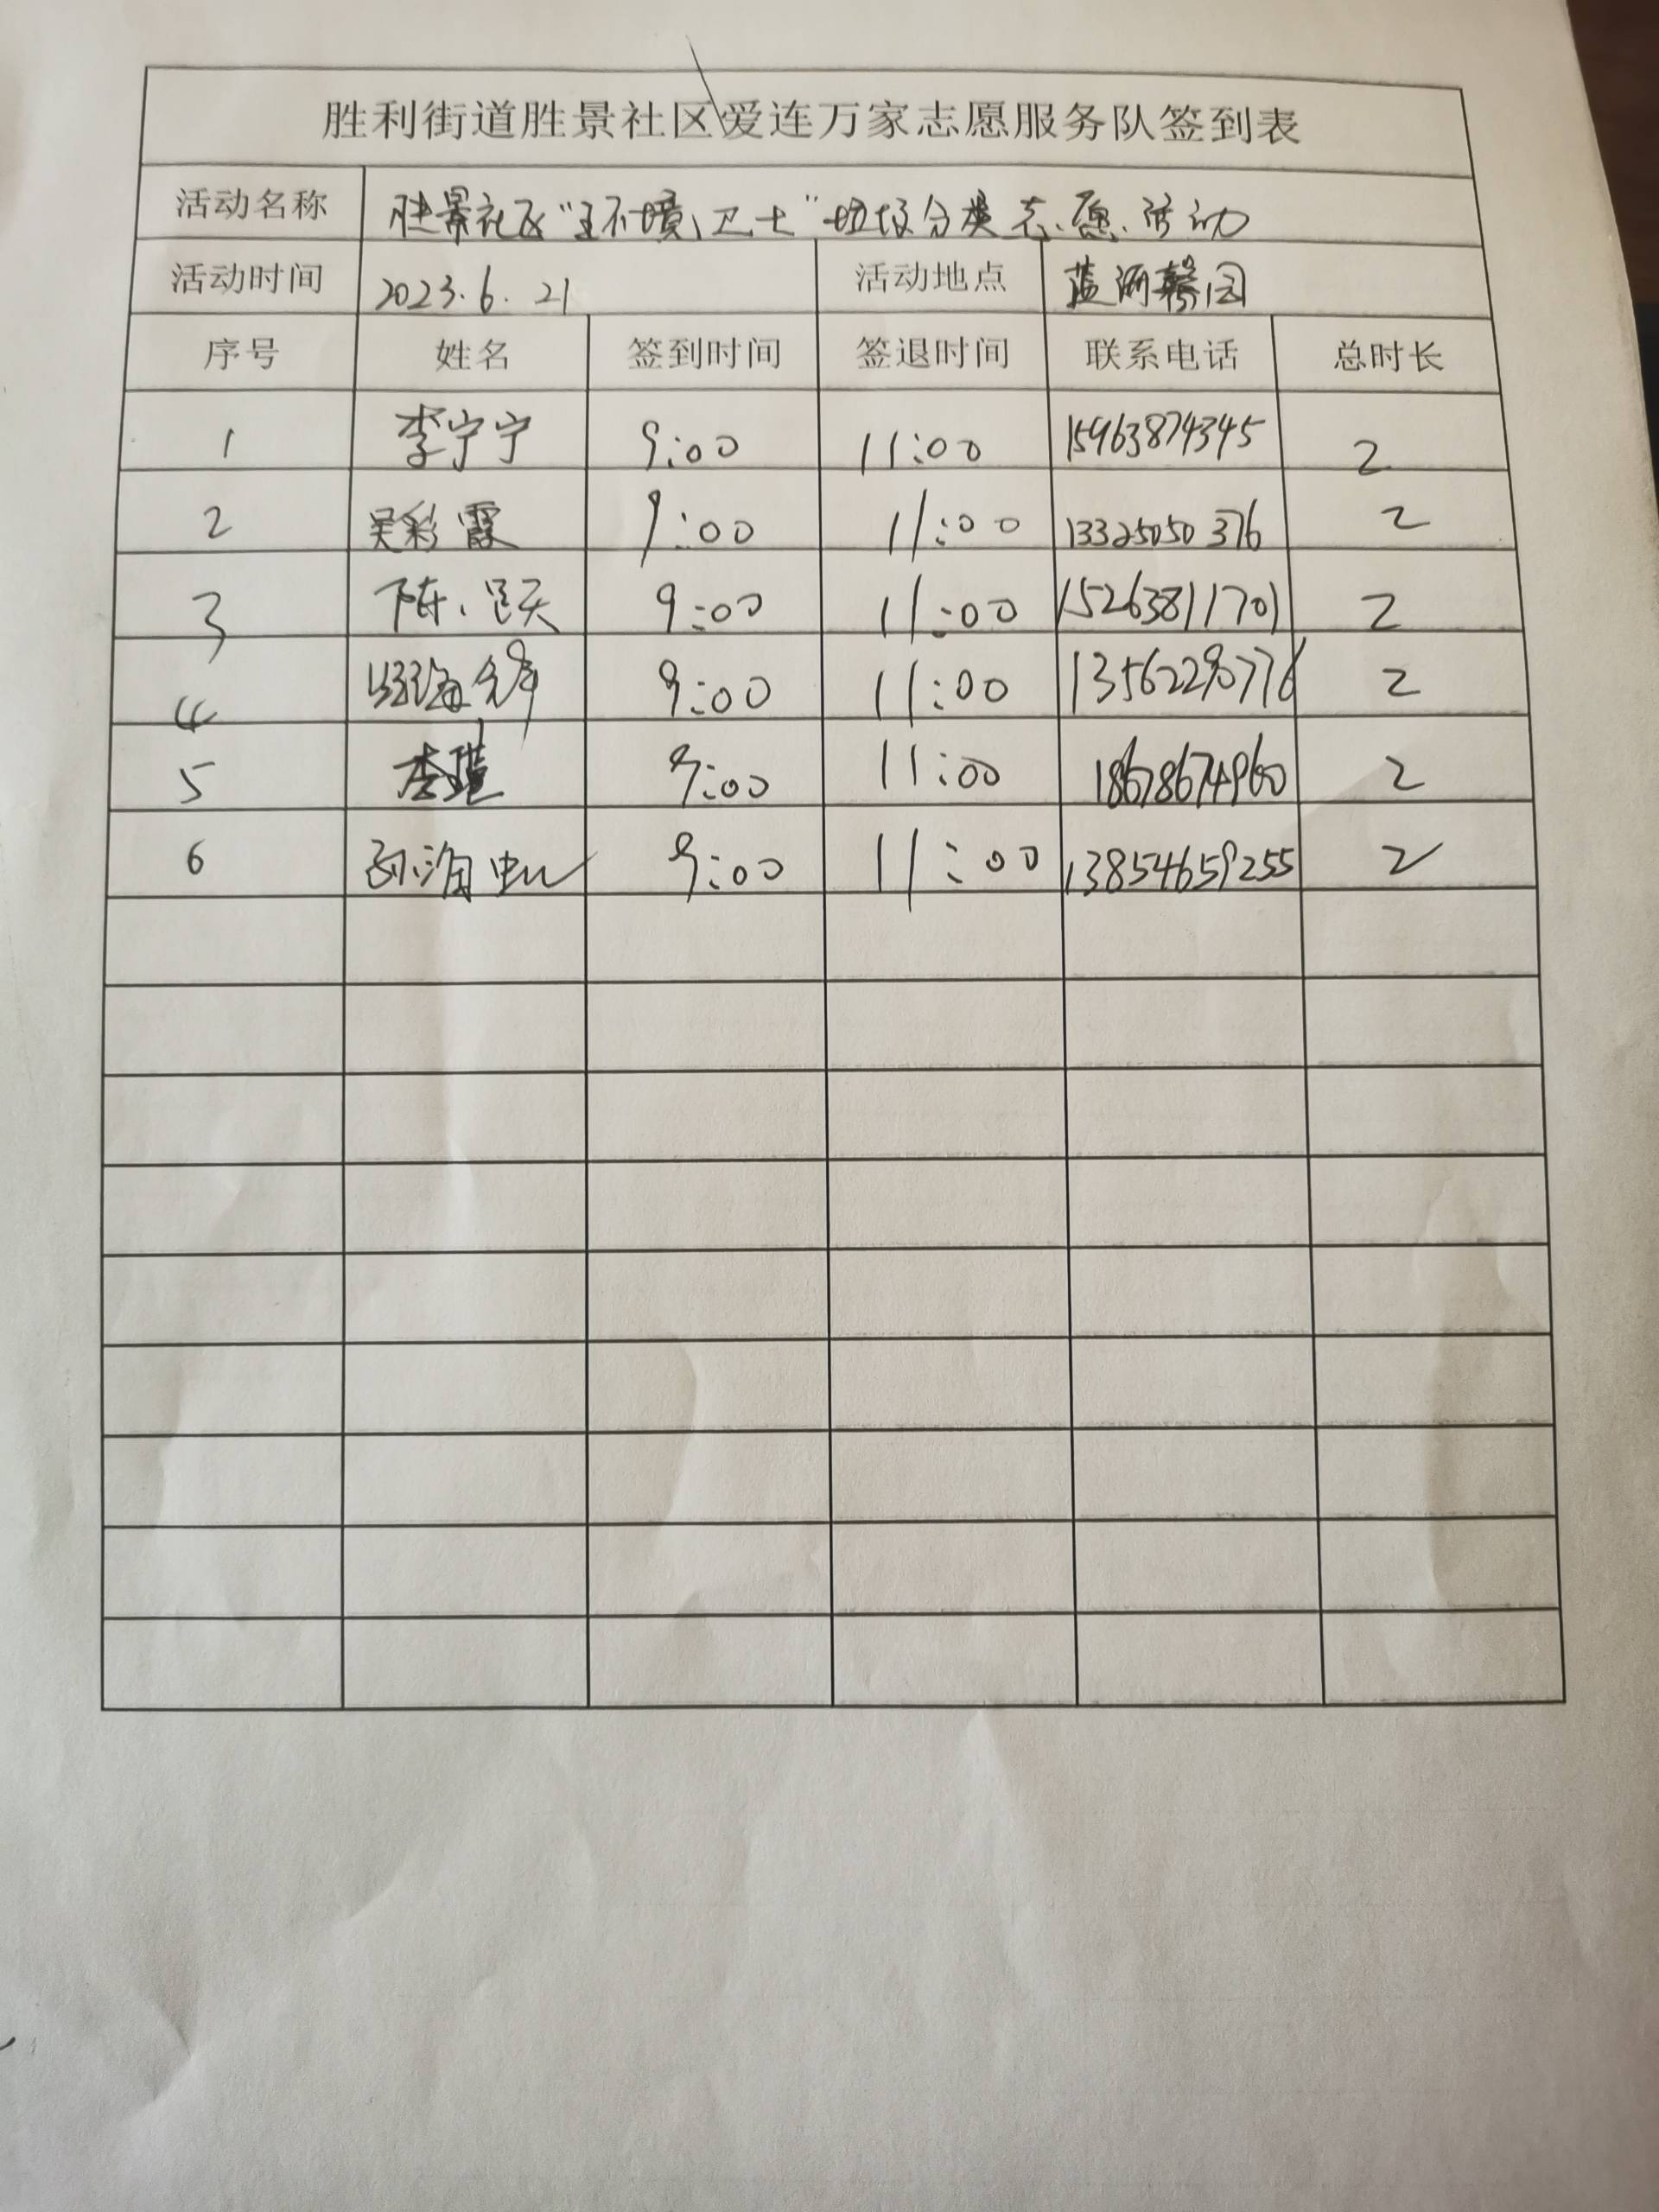 胜利街道胜景社区爱连万家志愿服务队签到表
活动名称 胜景社区"环境卫士"垃圾分类志愿活动
活动时间 2023.6.21 活动地点 园
序号 姓名 签到时间 签退时间 联系电话 总时长
1 李宁宁 9:00 11:00 15963874345 2
2 吴彩霞 9:00 11:00 13325050376 2
3 陈 9:00 11:00 15263811701 2
4 9:00 11:00 13562290776 2
5 李 9:00 11:00 18678674960 2
6 孙 9:00 11:00 13854659255 2